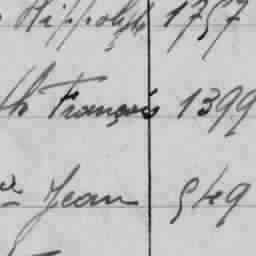 Hippolyte 1757
th François 1399
Jean 549